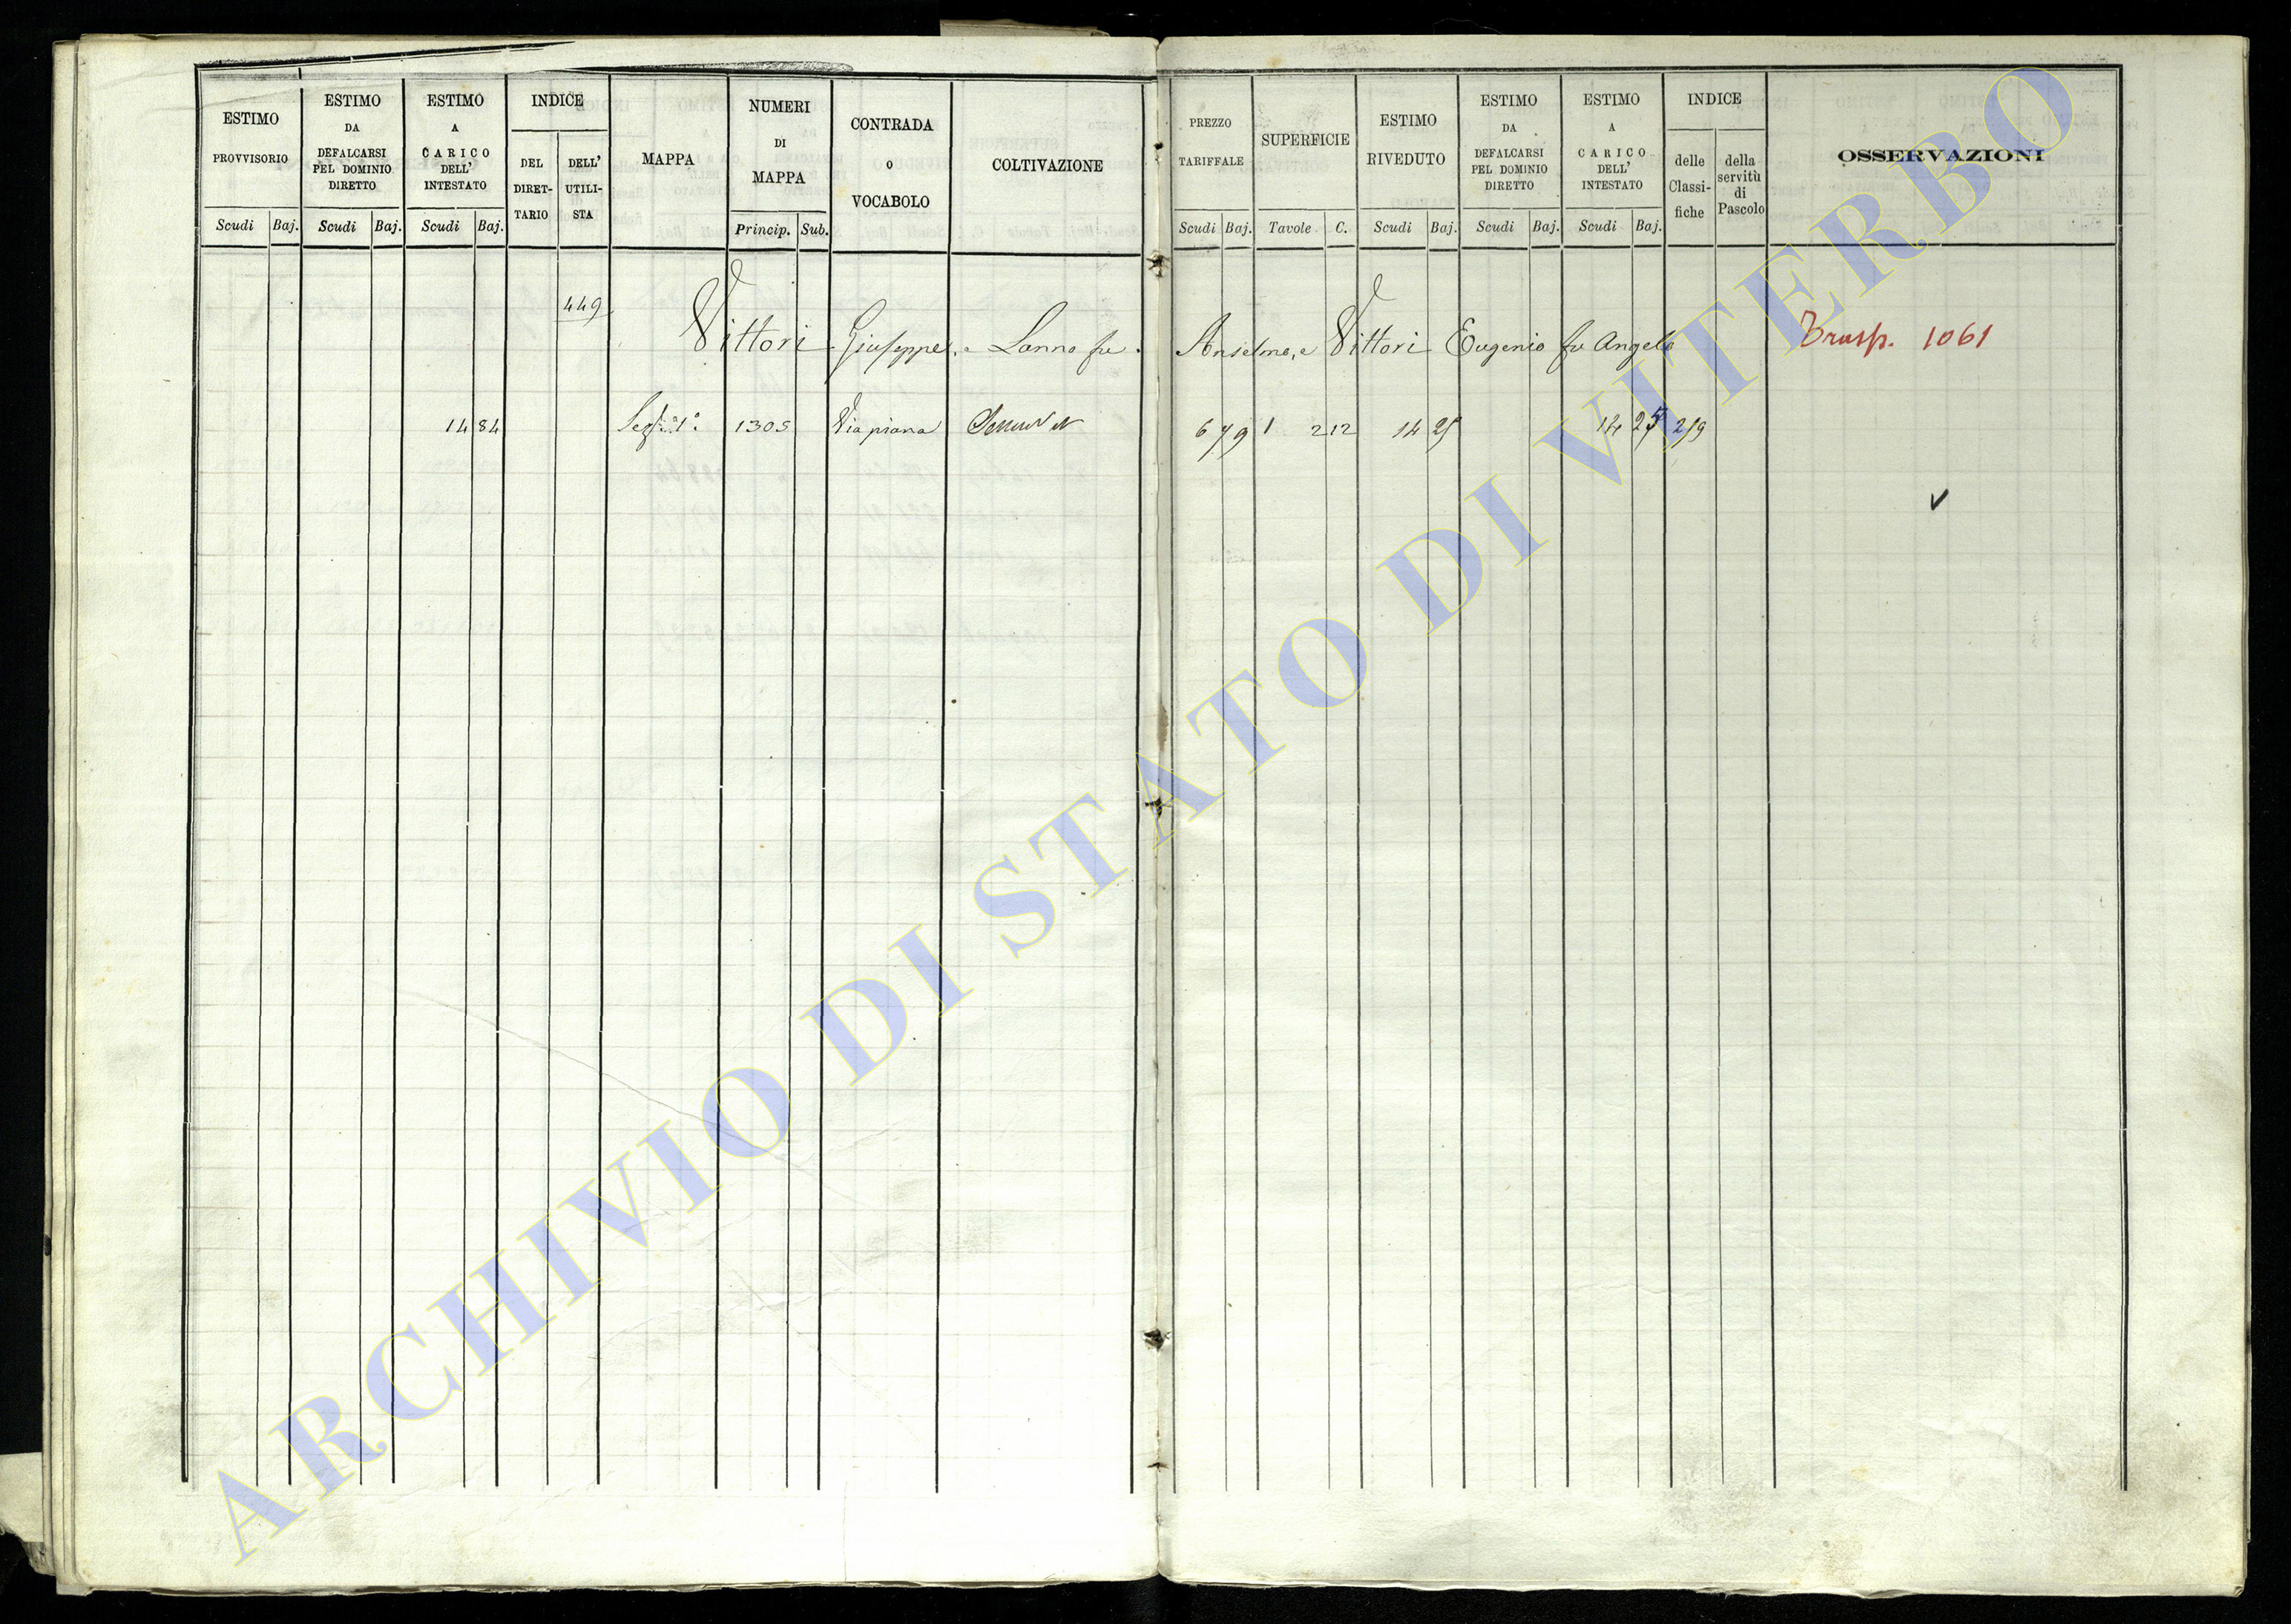 ESTIMO PROVVISORIO
Scudi Baj.
ESTIMO DA DEFALCARSI PEL DOMINIO DIRETTO
Scudi Baj.
ESTIMO A CARICO DELL' INTESTATO
Scudi Baj.
INDICE
DEL DIRET-TARIO
DELL' UTILI-STA
MAPPA
NUMERI DI MAPPA
Princip. Sub.
CONTRADA O VOCABOLO
COLTIVAZIONE
PREZZO TARIFFALE
Scudi Baj.
SUPERFICIE
Tavole C.
ESTIMO RIVEDUTO
Scudi Baj.
ESTIMO DA DEFALCARSI PEL DOMINIO DIRETTO
Scudi Baj.
ESTIMO A CARICO DELL' INTESTATO
Scudi Baj.
INDICE
delle Classi-fiche
della servitù di Pascolo
OSSERVAZIONI
449
Vittori Giuseppe, e fu Anselmo, e Vittori Eugenio fu Angelo Trasp. 1061
14 84 1305 Via piana 6 79 1 212 14 25 14 25 219
ARCHIVIO DI STATO DI VITERBO